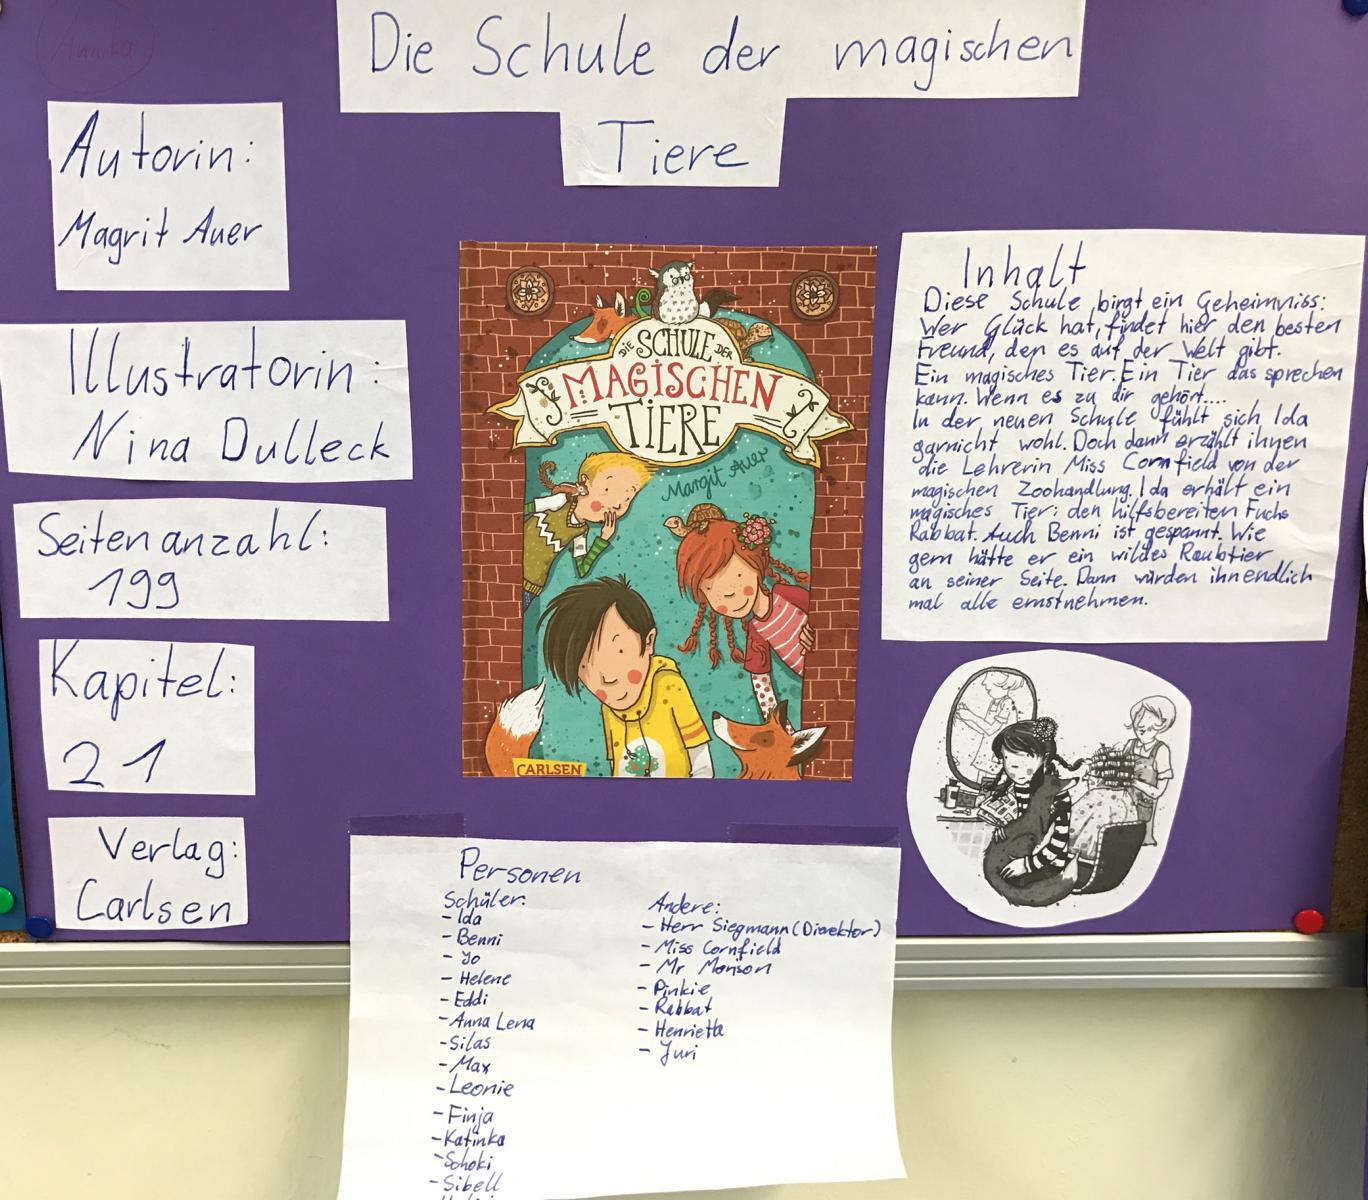 Annika
Die Schule der magischen
Tiere
Autorin:
Magrit Auer
Illustratorin:
Nina Dulleck
Seitenanzahl:
199
Kapitel:
21
Verlag:
Carlsen
DIE SCHULE DER
MAGISCHEN
TIERE
Margit Auer
CARLSEN
Inhalt
Diese Schule birgt ein Geheimniss:
Wer Glück hat, findet hier den besten
Freund, den es auf der Welt gibt.
Ein magisches Tier. Ein Tier das sprechen
kann. Wenn es zu dir gehört....
In der neuen Schule fühlt sich Ida
garnicht wohl. Doch dann erzählt ihnen
die Lehrerin Miss Cornfield von der
magischen Zoohandlung. Ida erhält ein
magisches Tier: den hilfsbereiten Fuchs
Rabbat. Auch Benni ist gespannt. Wie
gern hätte er ein wildes Raubtier
an seiner Seite. Dann würden ihn endlich
mal alle ernstnehmen.
Personen
Schüler:
- Ida
- Benni
- Jo
- Helene
- Eddi
- Anna Lena
- Silas
- Max
- Leonie
- Finja
- Katinka
- Schoki
- Sibell
Andere:
- Herr Siegmann (Direktor)
- Miss Cornfield
- Mr Morison
- Pinkie
- Rabbat
- Henrietta
- Juri